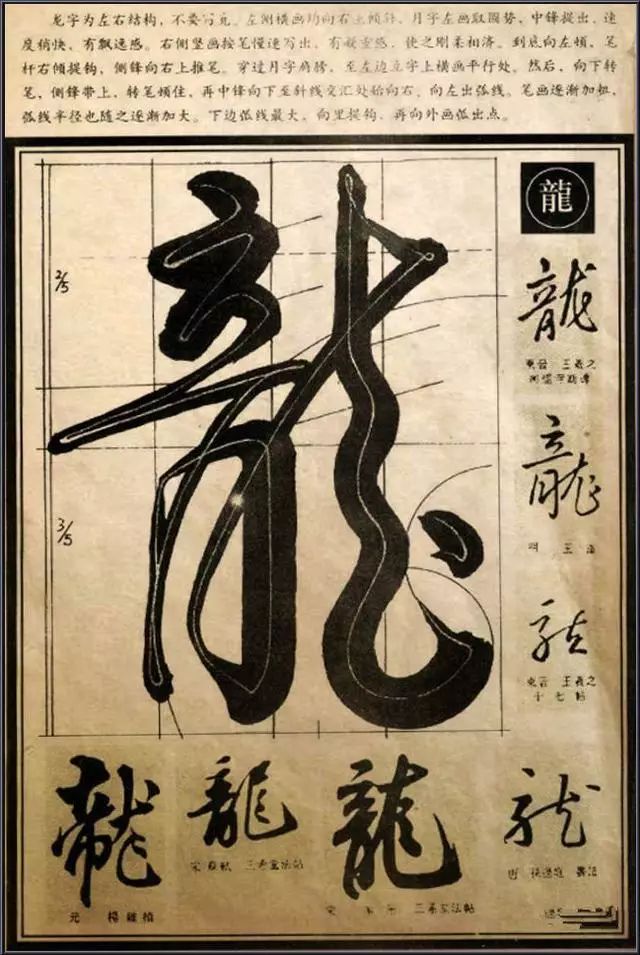 龙字为左右结构，不要写宽。左侧横画均向右上倾斜，月字左画取圆势，中锋提出，速
度稍快，有飘逸感。右侧竖画按笔慢速写出，有凝重感，使之刚柔相济。到底向左顿，笔
杆右倾提钩，侧锋向右上推笔。穿过月字肩膀，至左边立字上横画平行处。然后，向下转
笔，侧锋带上，转笔顿住，再中锋向下至斜线交汇处始向右、向左出弧线。笔画逐渐加粗，
弧线半径也随之逐渐加大。下边弧线最大，向里提钩，再向外画弧出点。
龍
龍
2/5
3/5
龍
東晋 王羲之
龍
明 王
龍
東晋 王羲之
十七帖
龍
元 楊維楨
龍
宋 三希堂法帖
龍
宋 三希堂法帖
龍
唐 孫過庭 書譜